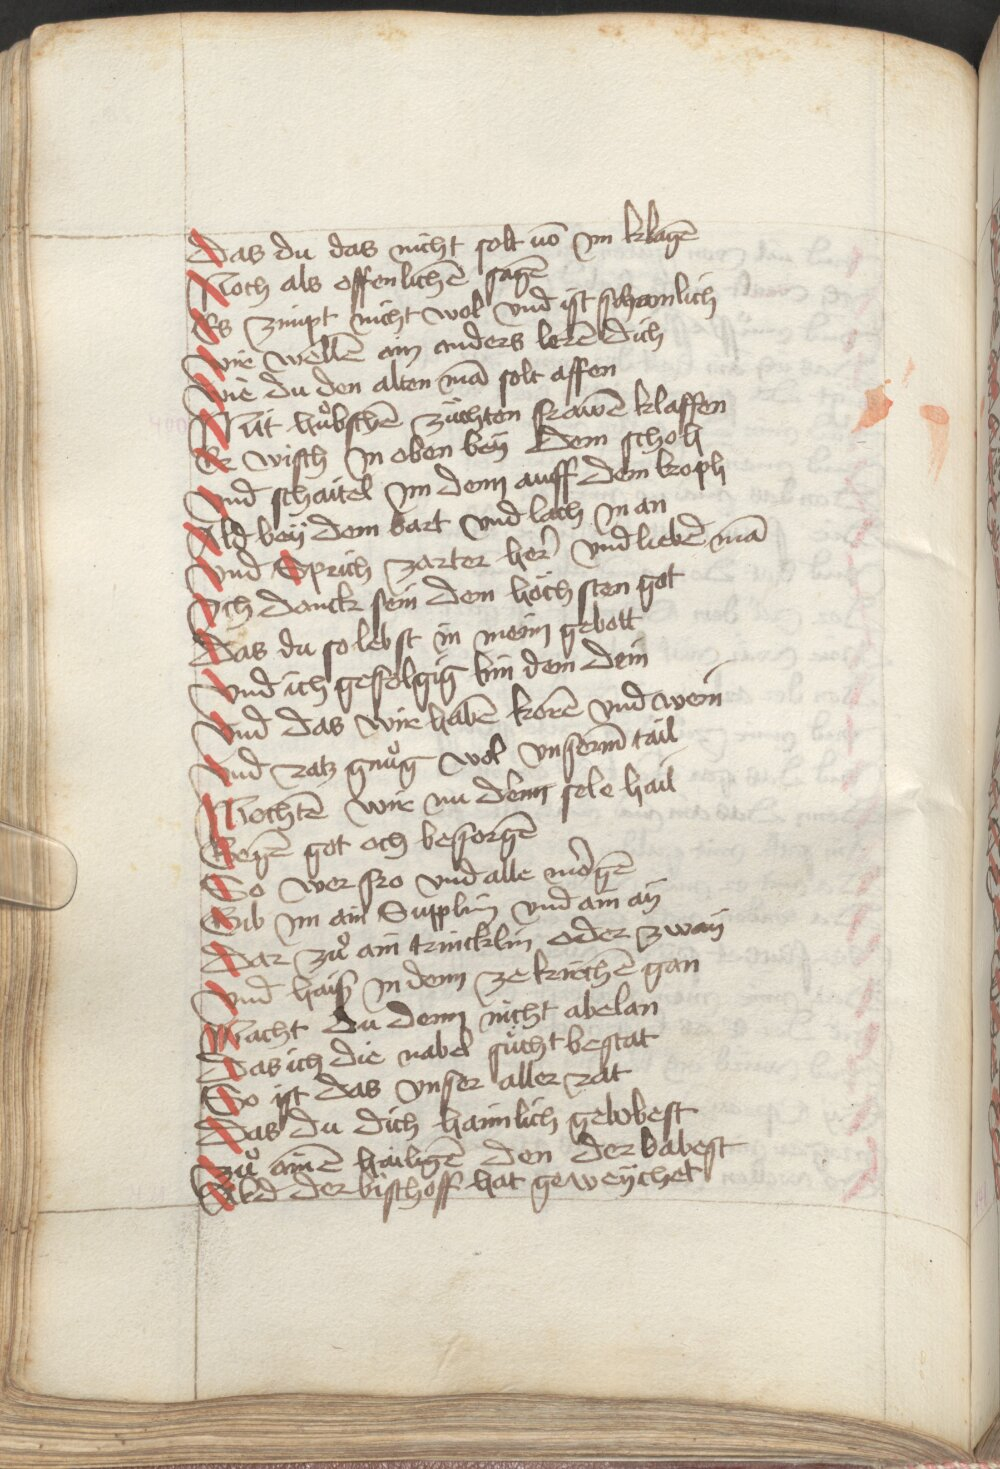 Das du das nicht solt vō im klagē
Noch als offenlichē sagē
Es zimpt nicht wol vnd ist schamlich
Wir wellē ain anders lerē dich
Wie du den alten mā solt affen
Mit hu̇bschē zu̇chten frawē klaffen
Er wisch in oben bey dem schoh
Vnd schaitel im denn auff dem kroph
Ald bey dem bart vnd lach in an
Vnd Sprich zarter her vnd lieber mā
Ich danck sein dem höchsten got
Das du so lebst in meim gebott
Vnd ich gefolgig bin dem dein
Vnd das wir habē korē vnd wein
Vnd ratz gnu̇g wol vnserm tail
Mochtē wir nu denn sele hail
Gegē got och besorgē
So wer fro vnd alle morgē
Gib im ain Supplin vnd ain ay
Dar zu̇ ain trincklin oder zway
Vnd haiß in denn ze kirchē gan
Macht du denn nicht abelan
Das ich die nabel su̇cht bestat
So ist das vnser aller rat
Das du dich haimlich gelobest
Zu̇ ainē hailigē den der babest
Ald der bischoff hat geweychet